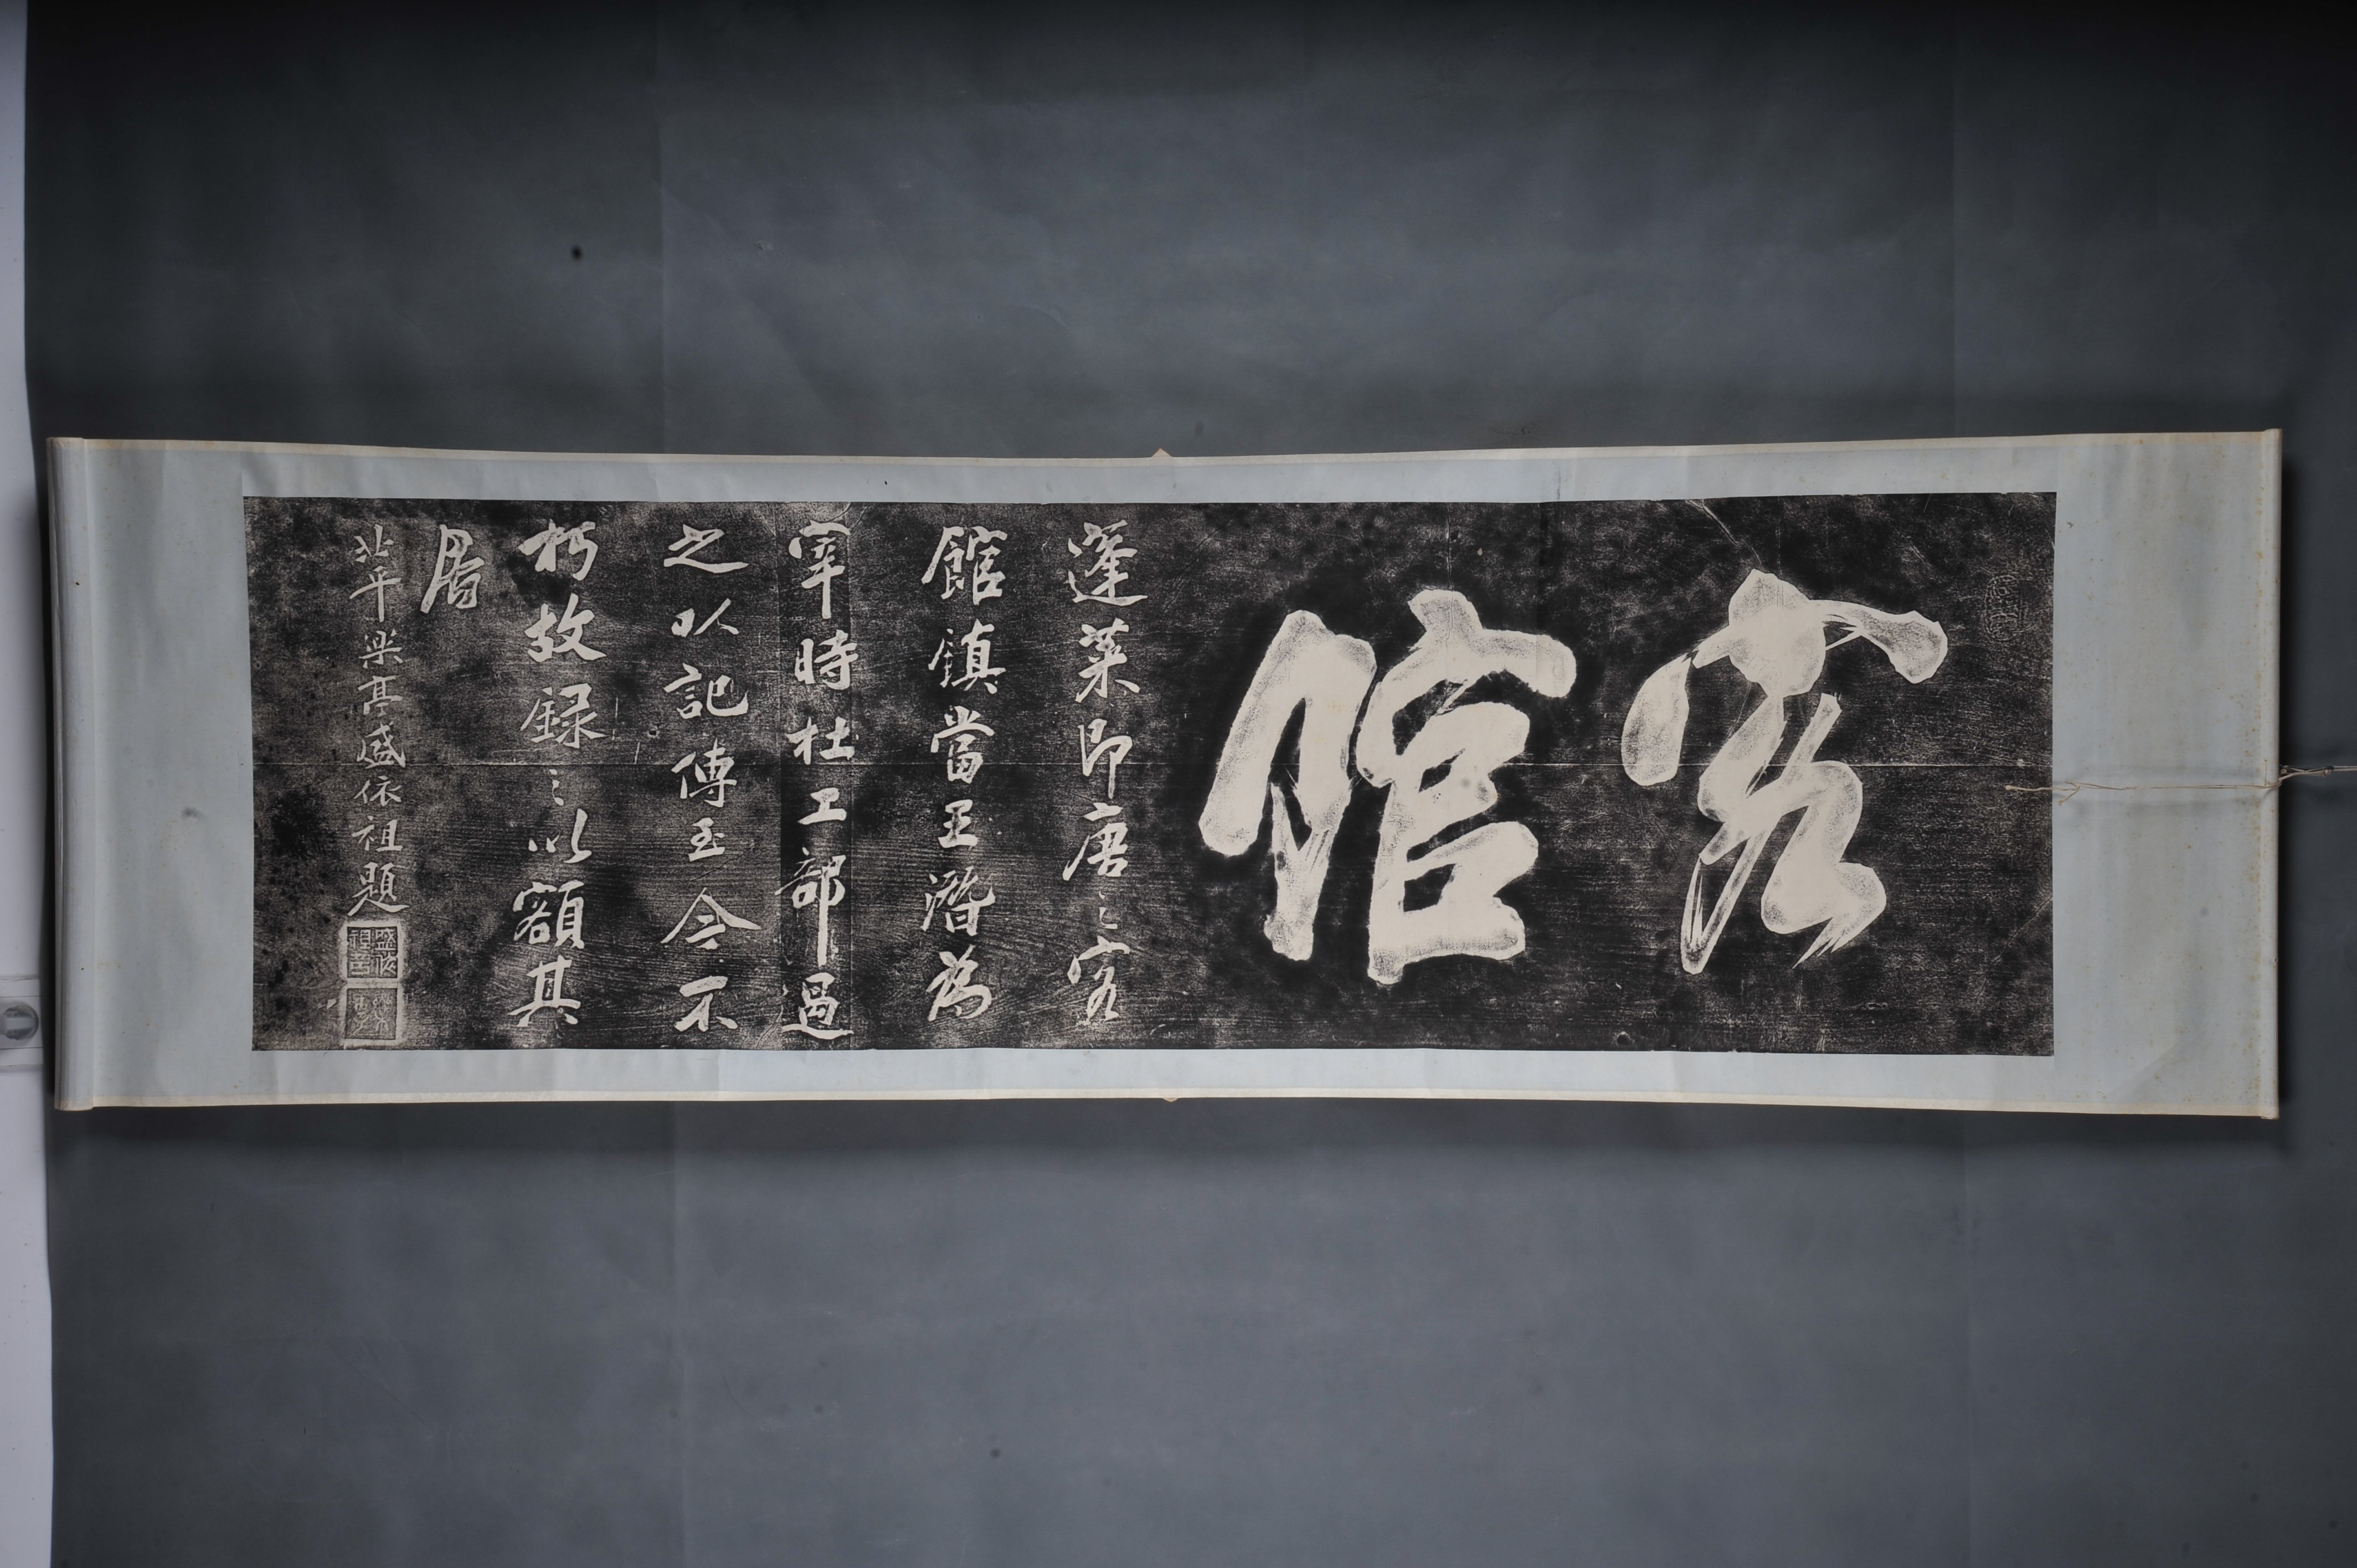 客館
蓬萊即唐之客
館鎮當王潛為
宰時杜工部過
之以記傳至今不
朽故録之以額其
居
北平樂亭盛依祖題